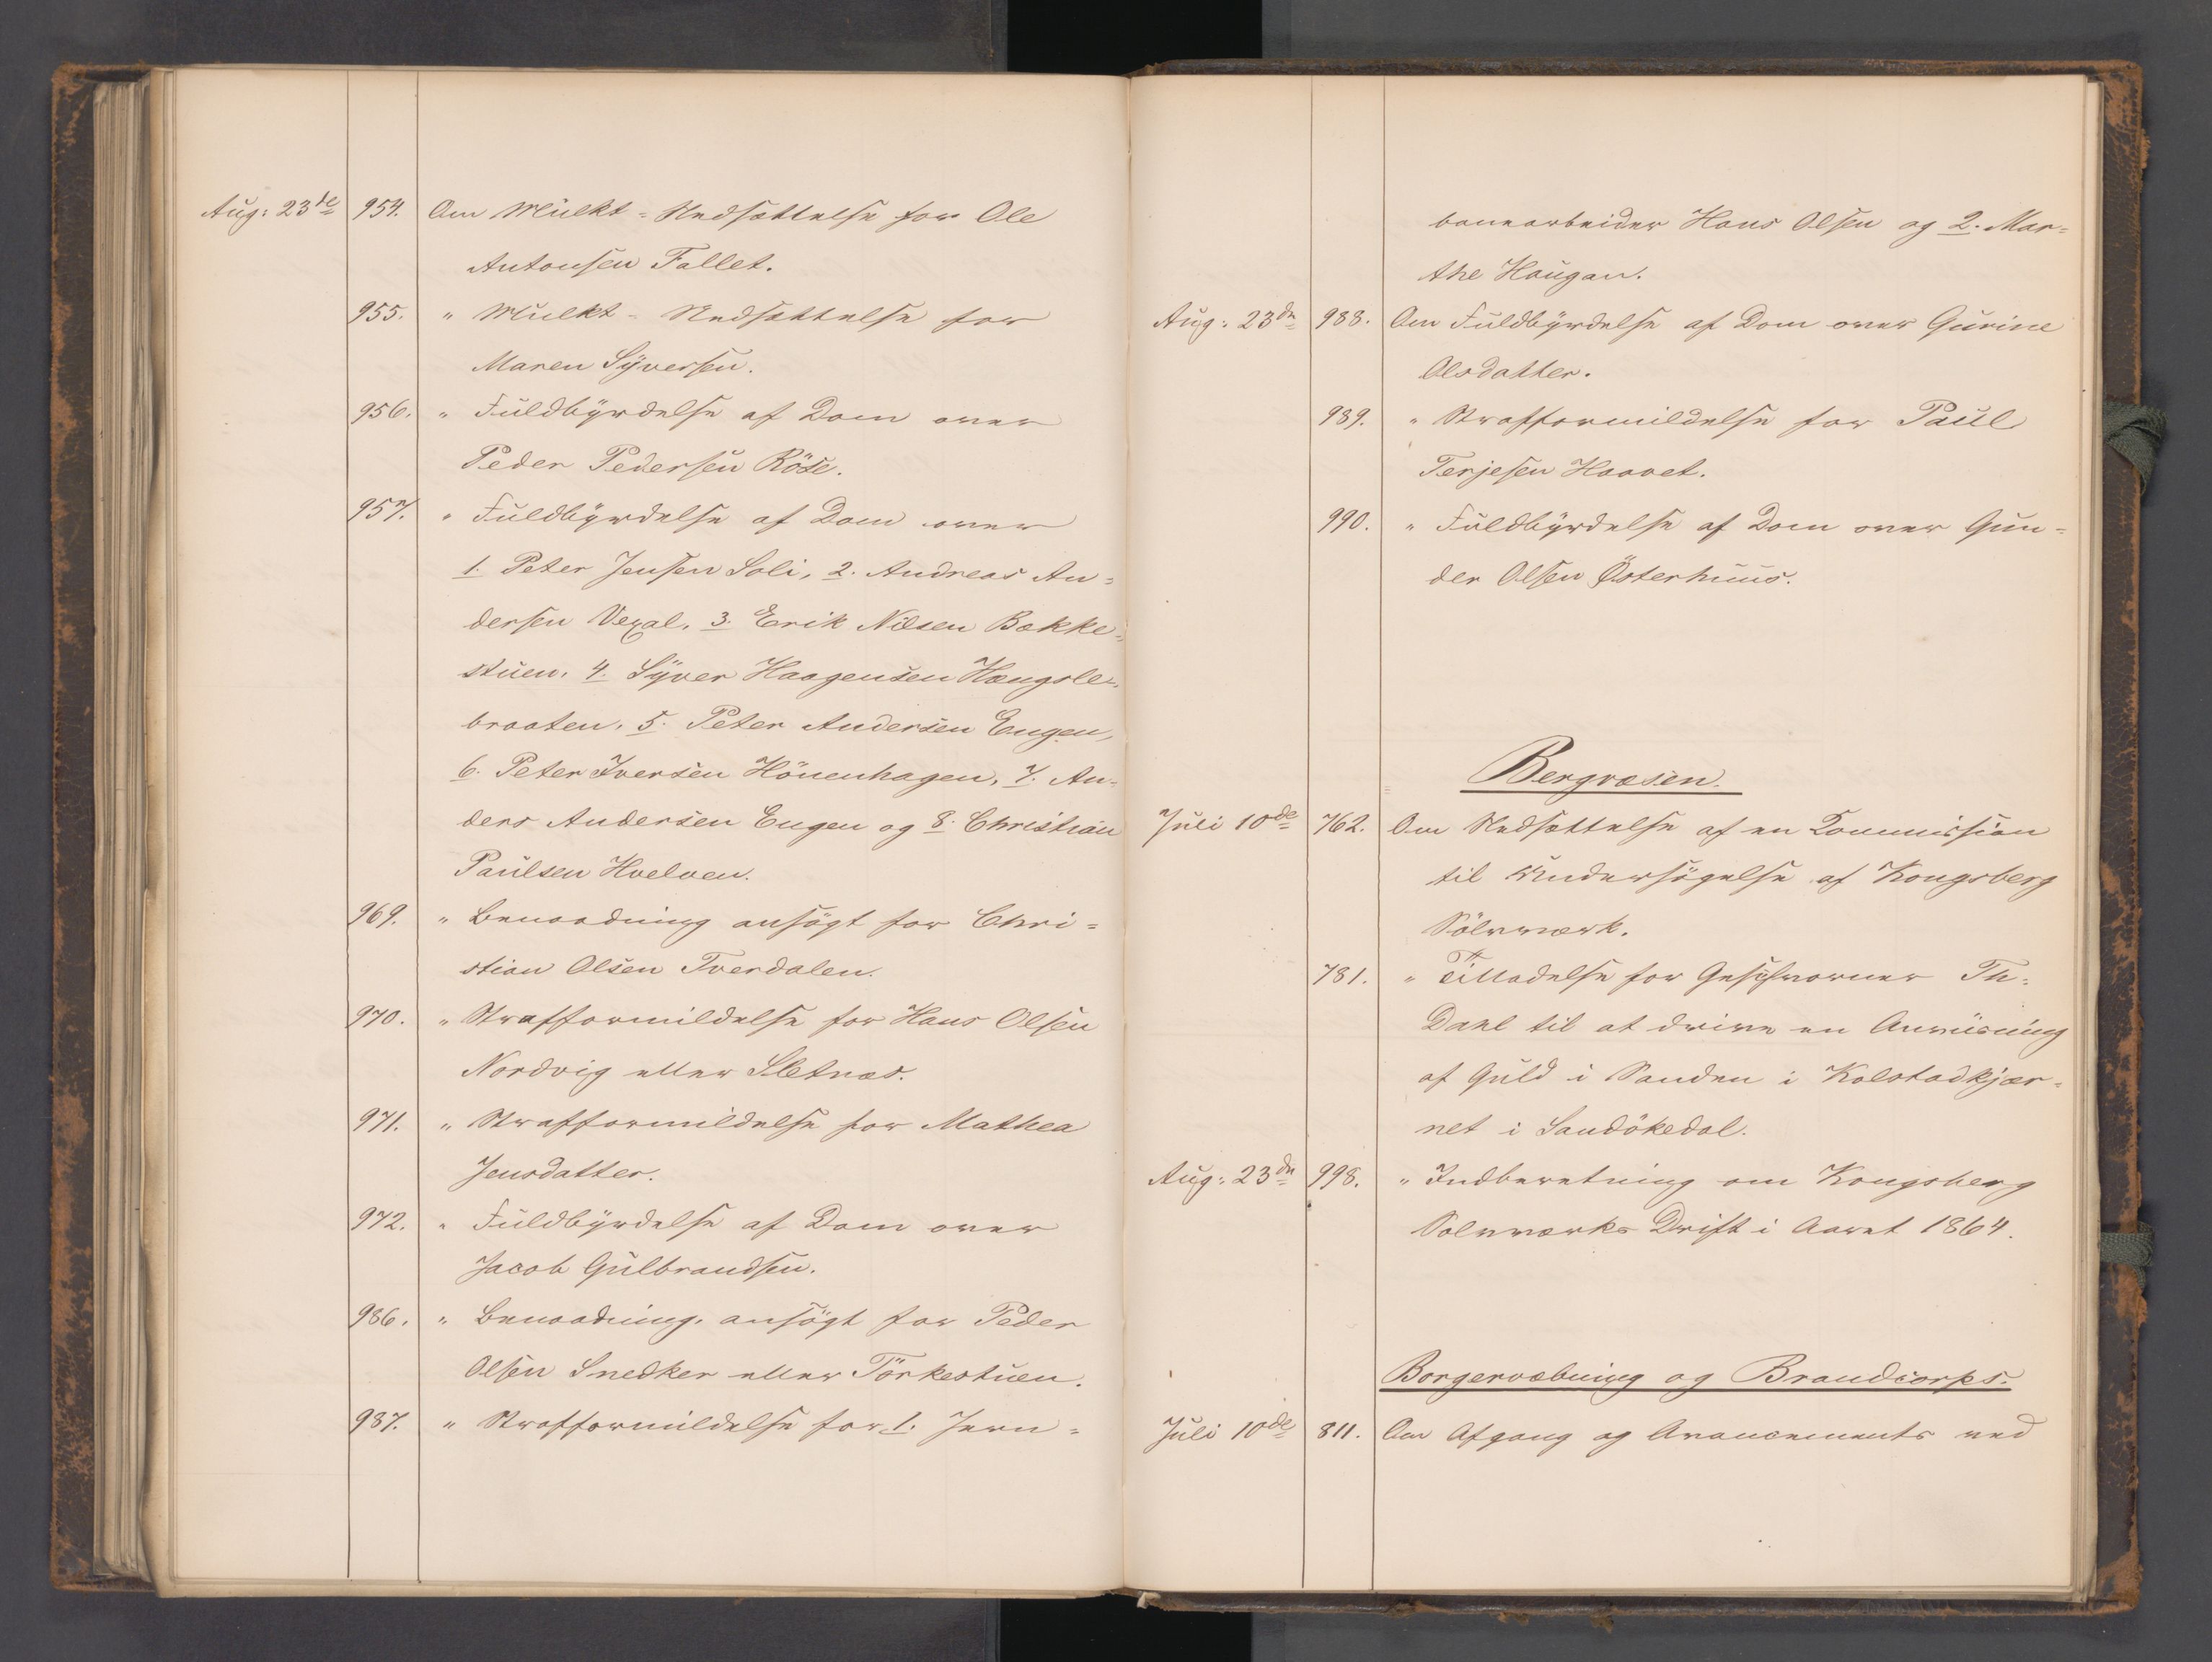 Aug: 23de 954. Om Mulkt-Nedsættelse for Ole
Antonsen Fallet.
955. " Mulkt-Nedsættelse for
Maren Syversen.
956. " Fuldbyrdelse af Dom over
Peder Pedersen Röse.
957. " Fuldbyrdelse af Dom over
1. Peter Jensen Soli, 2. Andreas An=
dersen Vexal, 3. Erik Nilsen Bakke=
stuen, 4. Syver Haagensen Hængsle=
braaten, 5. Peter Andersen Engen,
6. Peter Iversen Hönenhagen, 7. An=
ders Andersen Engen og 8. Christian
Paulsen Hvelven.
969. " Benaadning ansögt for Chri=
stian Olsen Tverdalen.
970. " Strafformildelse for Hans Olsen
Nordvig eller Sletnæs.
971. " Strafformildelse for Mathea
Jensdatter.
972. " Fuldbyrdelse af Dom over
Jacob Gulbrandsen.
986. " Benaadning, ansögt for Peder
Olsen Snedker eller Törkestuen.
987. " Strafformildelse for 1. Jern=
banearbeider Hans Olsen og 2. Mar=
the Haugan.
Aug: 23de 988. Om Fuldbyrdelse af Dom over Gurine
Olsdatter.
989. " Strafformildelse for Paul
Terjesen Hoovet.
990. " Fuldbyrdelse af Dom over Gun=
der Olsen Österhuus.
Bergvæsen.
Juli 10de 762. Om Nedsættelse af en Commission
til Undersögelse af Kongsberg
Sölvværk.
781. " Tilladelse for Geschworner Th:
Dahl til at drive en Anviisning
af Guld i Sanden i Kolstadkjær=
net i Sandökedal.
Aug: 23de 998. " Indberetning om Kongsberg
Solvværks Drift i Aaret 1864.
Borgervæbning og Brandcorps.
Juli 10de 811. Om Afgang og Avancements ved